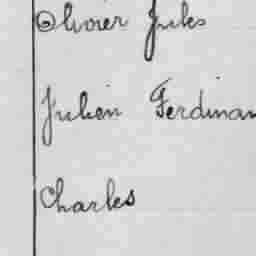 Olivier Jules
Julien Ferdinan
Charles